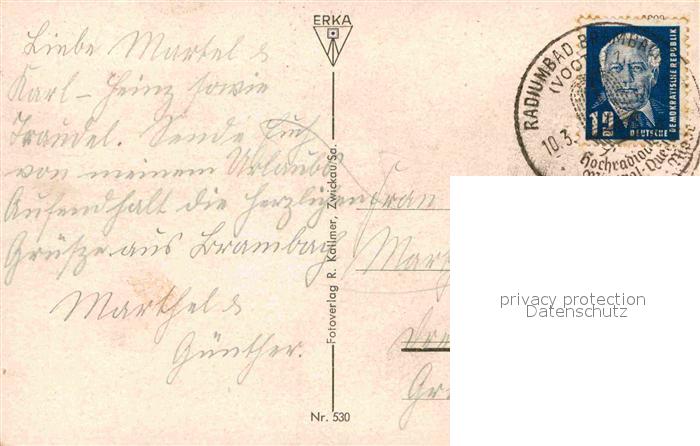 ERKA
Liebe Martel &
Karl-Heinz sowie
Traudel. Sende Euch
von meinem Urlaubs
Aufendhalt die herzligen
Grüsze aus Brambach
Marthel &
Günther.
Fotoverlag R. Kallmer, Zwickau/Sa.
Nr. 530
RADIUMBAD BRAMBACH
(VOGTL
10.3.
Hochradioakt
12
DEUTSCHE
DEMOKRATISCHE REPUBLIK
Frau
privacy protection
Datenschutz